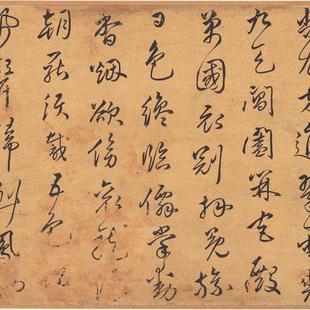 尚衣方進翠雲裘
九天閶闔開宮殿
萬國衣冠拜冕旒
日色纔臨僊掌動
香煙欲傍袞龍浮
朝罷須裁五色
聲歸到鳳